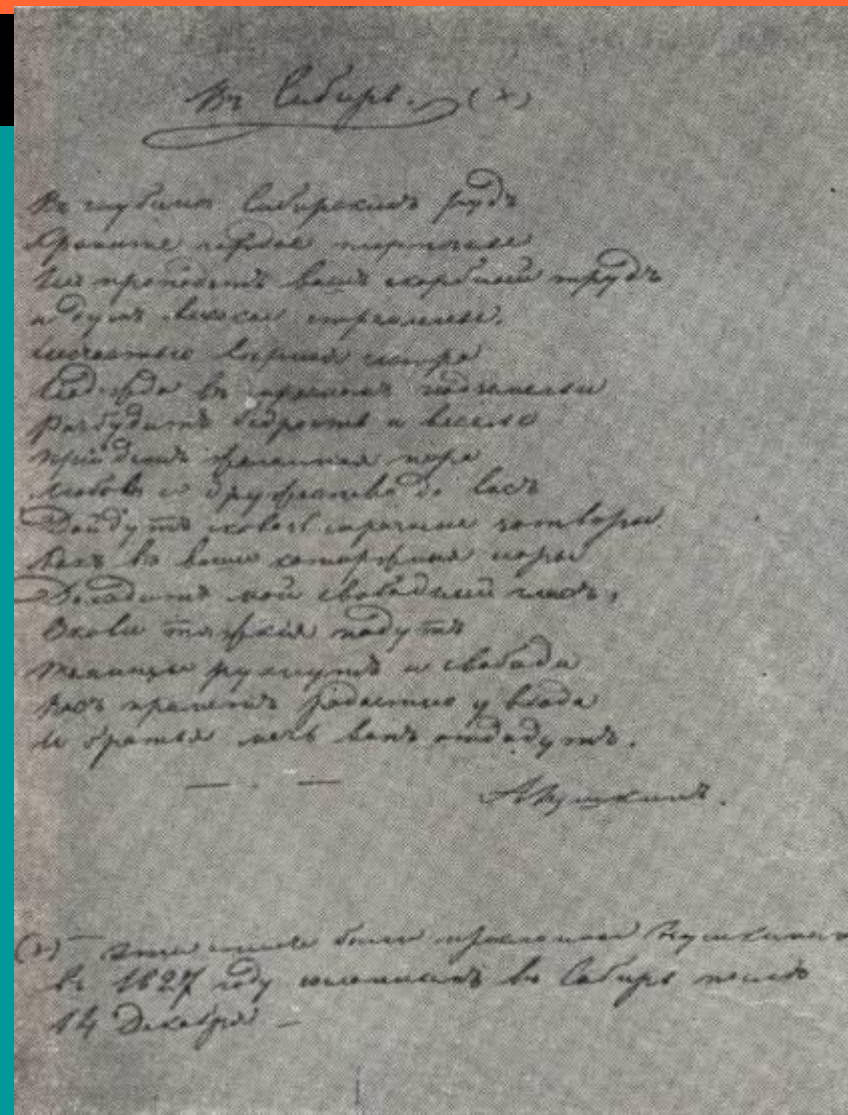 Въ Сибирь. (×)
Въ глубинѣ Сибирскихъ рудъ
Храните гордое терпѣнье
Не пропадетъ вашъ скорбный трудъ
и думъ высокое стремленье.
Несчастью вѣрная сестра
Надежда въ мрачномъ подземельи
Разбудитъ бодрость и веселье
Прийдетъ желанная пора
Любовь и дружество до васъ
Дойдутъ сквозь мрачные затворы
Какъ въ ваши каторжныя норы
Доходитъ мой свободный гласъ.
Оковы тяжкія падутъ
Темницы рухнутъ и свобода
Васъ приметъ радостно у входа
И братья мечь вамъ отдадутъ.
АПушкинъ.
(×) — Эти стихи были присланы Пушкинымъ
въ 1827 году сосланнымъ въ Сибирь послѣ
14 Декабря —